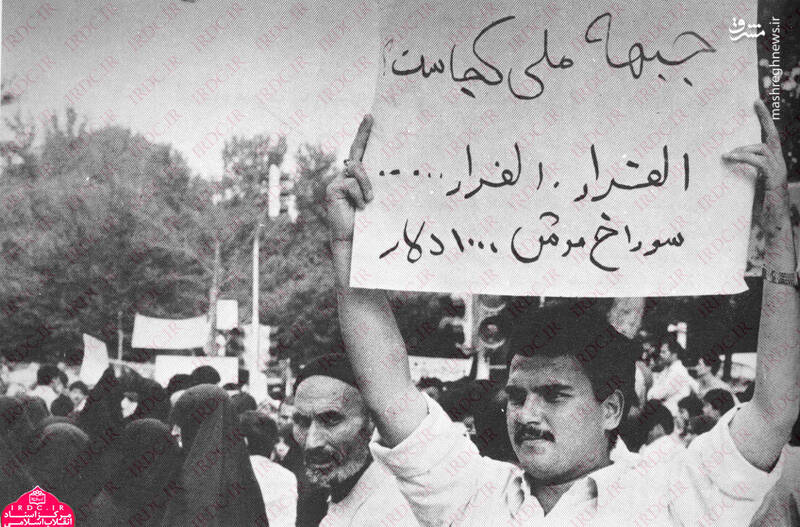 جبهه ملی کجاست؟
الفرار . الفرار .....
سوراخ موش ۱۰۰۰ دلار
مشرق
mashreghnews.ir
IRDC.IR
مرکز اسناد
انقلاب اسلامی